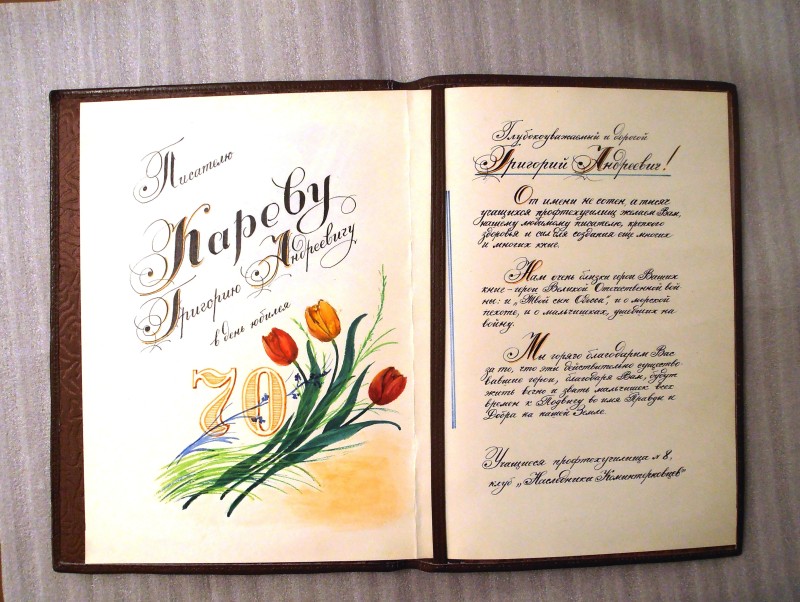 Писателю
Кареву
Григорию Андреевичу
в день юбилея
70
Глубокоуважаемый и дорогой
Григорий Андреевич!
От имени не сотен, а тысяч
учащихся профтехучилищ желаем Вам,
нашему любимому писателю, крепкого
здоровья и сил для создания еще многих
и многих книг.
Нам очень близки герои Ваших
книг – герои Великой Отечественной вой
ны: и „Твой сын Одесса", и о морской
пехоте, и о мальчишках, ушедших на
войну.
Мы горячо благодарим Вас
за то, что эти действительно существо
вавшие герои, благодаря Вам, будут
жить вечно и звать мальчишек всех
времен к Подвигу во имя Правды и
Добра на нашей Земле.
Учащиеся профтехучилища № 8,
клуб „Наследники Коминтерновцев"